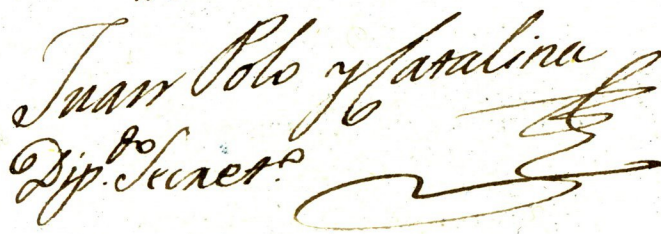 Juan Polo y Catalina
Dip.do Secret.o